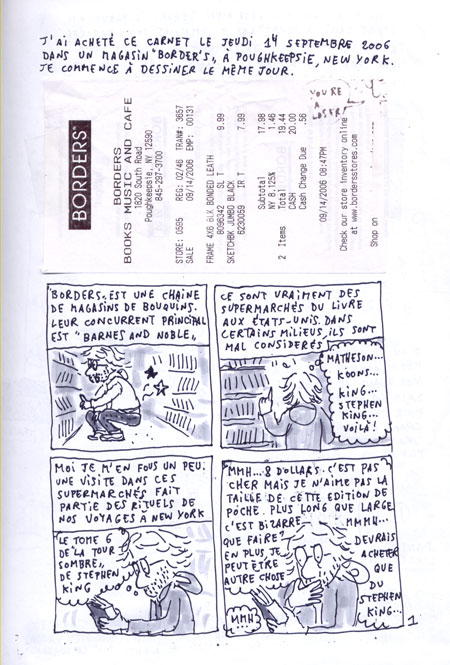 J'AI ACHETÉ CE CARNET LE JEUDI 14 SEPTEMBRE 2006
DANS UN MAGASIN "BORDER'S", À POUGHKEEPSIE, NEW YORK.
JE COMMENCE À DESSINER LE MÊME JOUR.
BORDERS
BORDERS
BOOKS MUSIC AND CAFE
1820 South Road
Poughkeepsie, NY 12590
845-297-3700
STORE: 0555 REG: 02/46 TRAN#: 3657
SALE 09/14/2006 EMP: 00131
FRAME 4X6 BLK BONDED LEATH
8096342 SL T 9.99
SKETCHBK JUMBO BLACK
6230059 IR T 7.99
Subtotal 17.98
NY 8.125% 1.46
2 Items Total 19.44
CASH 20.00
Cash Change Due .56
09/14/2006 08:47PM
Check our store inventory online
at www.bordersstores.com
Shop on
YOU'RE
A
LOSER!
BORDERS, EST UNE CHAÎNE
DE MAGASINS DE BOUQUINS.
LEUR CONCURRENT PRINCIPAL
EST "BARNES AND NOBLE"
CE SONT VRAIMENT DES
SUPERMARCHÉS DU LIVRE
AUX ÉTATS-UNIS. DANS
CERTAINS MILIEUX, ILS SONT
MAL CONSIDERÉS
MATHESON...
KOONS...
KING...
STEPHEN
KING...
VOILÀ!
MOI JE M'EN FOUS UN PEU.
UNE VISITE DANS CES
SUPERMARCHÉS FAIT
PARTIE DES RITUELS DE
NOS VOYAGES À NEW YORK
LE TOME 6
DE "LA TOUR
SOMBRE",
DE STEPHEN
KING
MMH... 8 DOLLARS. C'EST PAS
CHER MAIS JE N'AIME PAS LA
TAILLE DE CETTE EDITION DE
POCHE. PLUS LONG QUE LARGE
C'EST BIZARRE
QUE FAIRE?
EN PLUS, JE
PEUT ÊTRE
AUTRE CHOSE
MMMH...
DEVRAIS
ACHETER
QUE
DU
STEPHEN
KING...
MMH
1